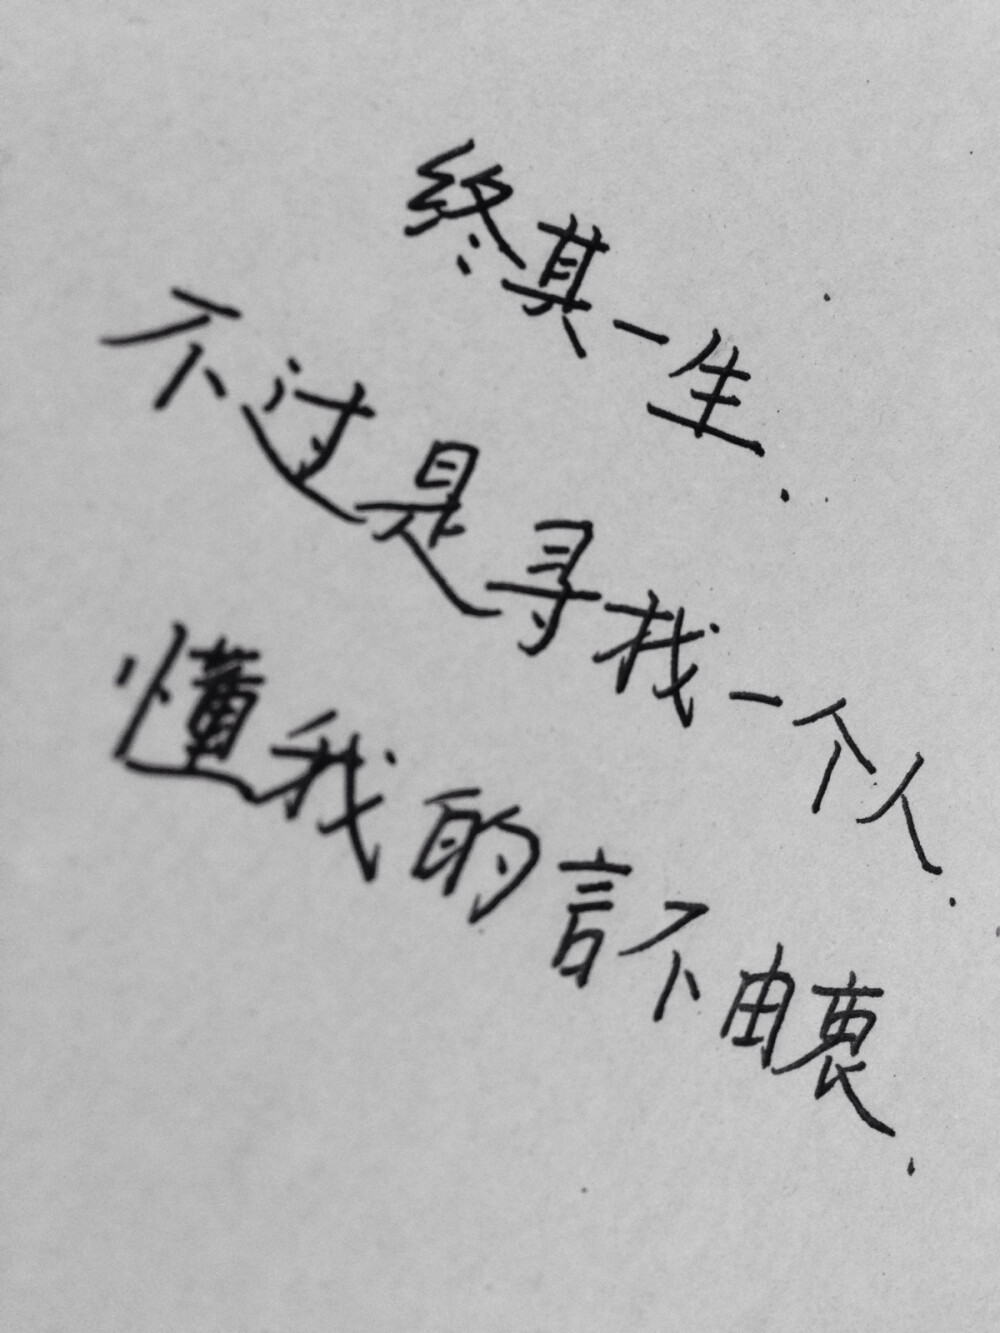 终其一生.
不过是寻找一个人.
懂我的言不由衷.